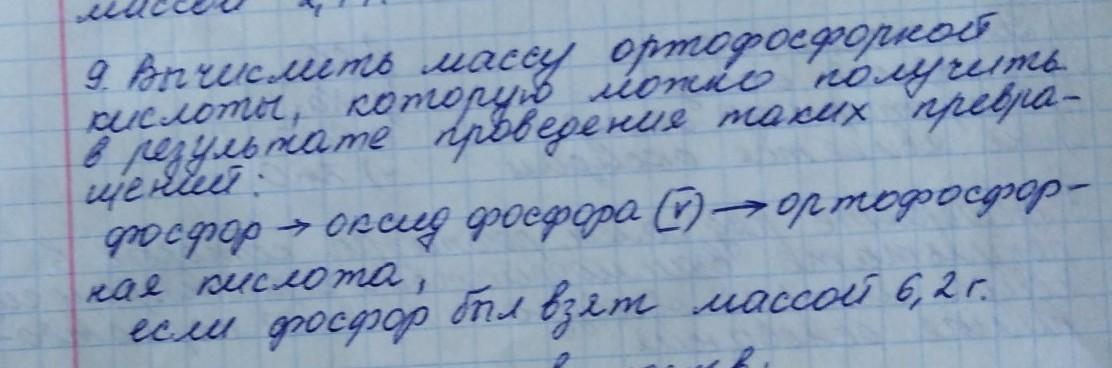 массой 2,
9. Вычислить массу ортофосфорной
кислоты, которую можно получить
в результате проведения таких превра-
щений:
фосфор → оксид фосфора (V) → ортофосфор-
ная кислота,
если фосфор был взят массой 6,2 г.